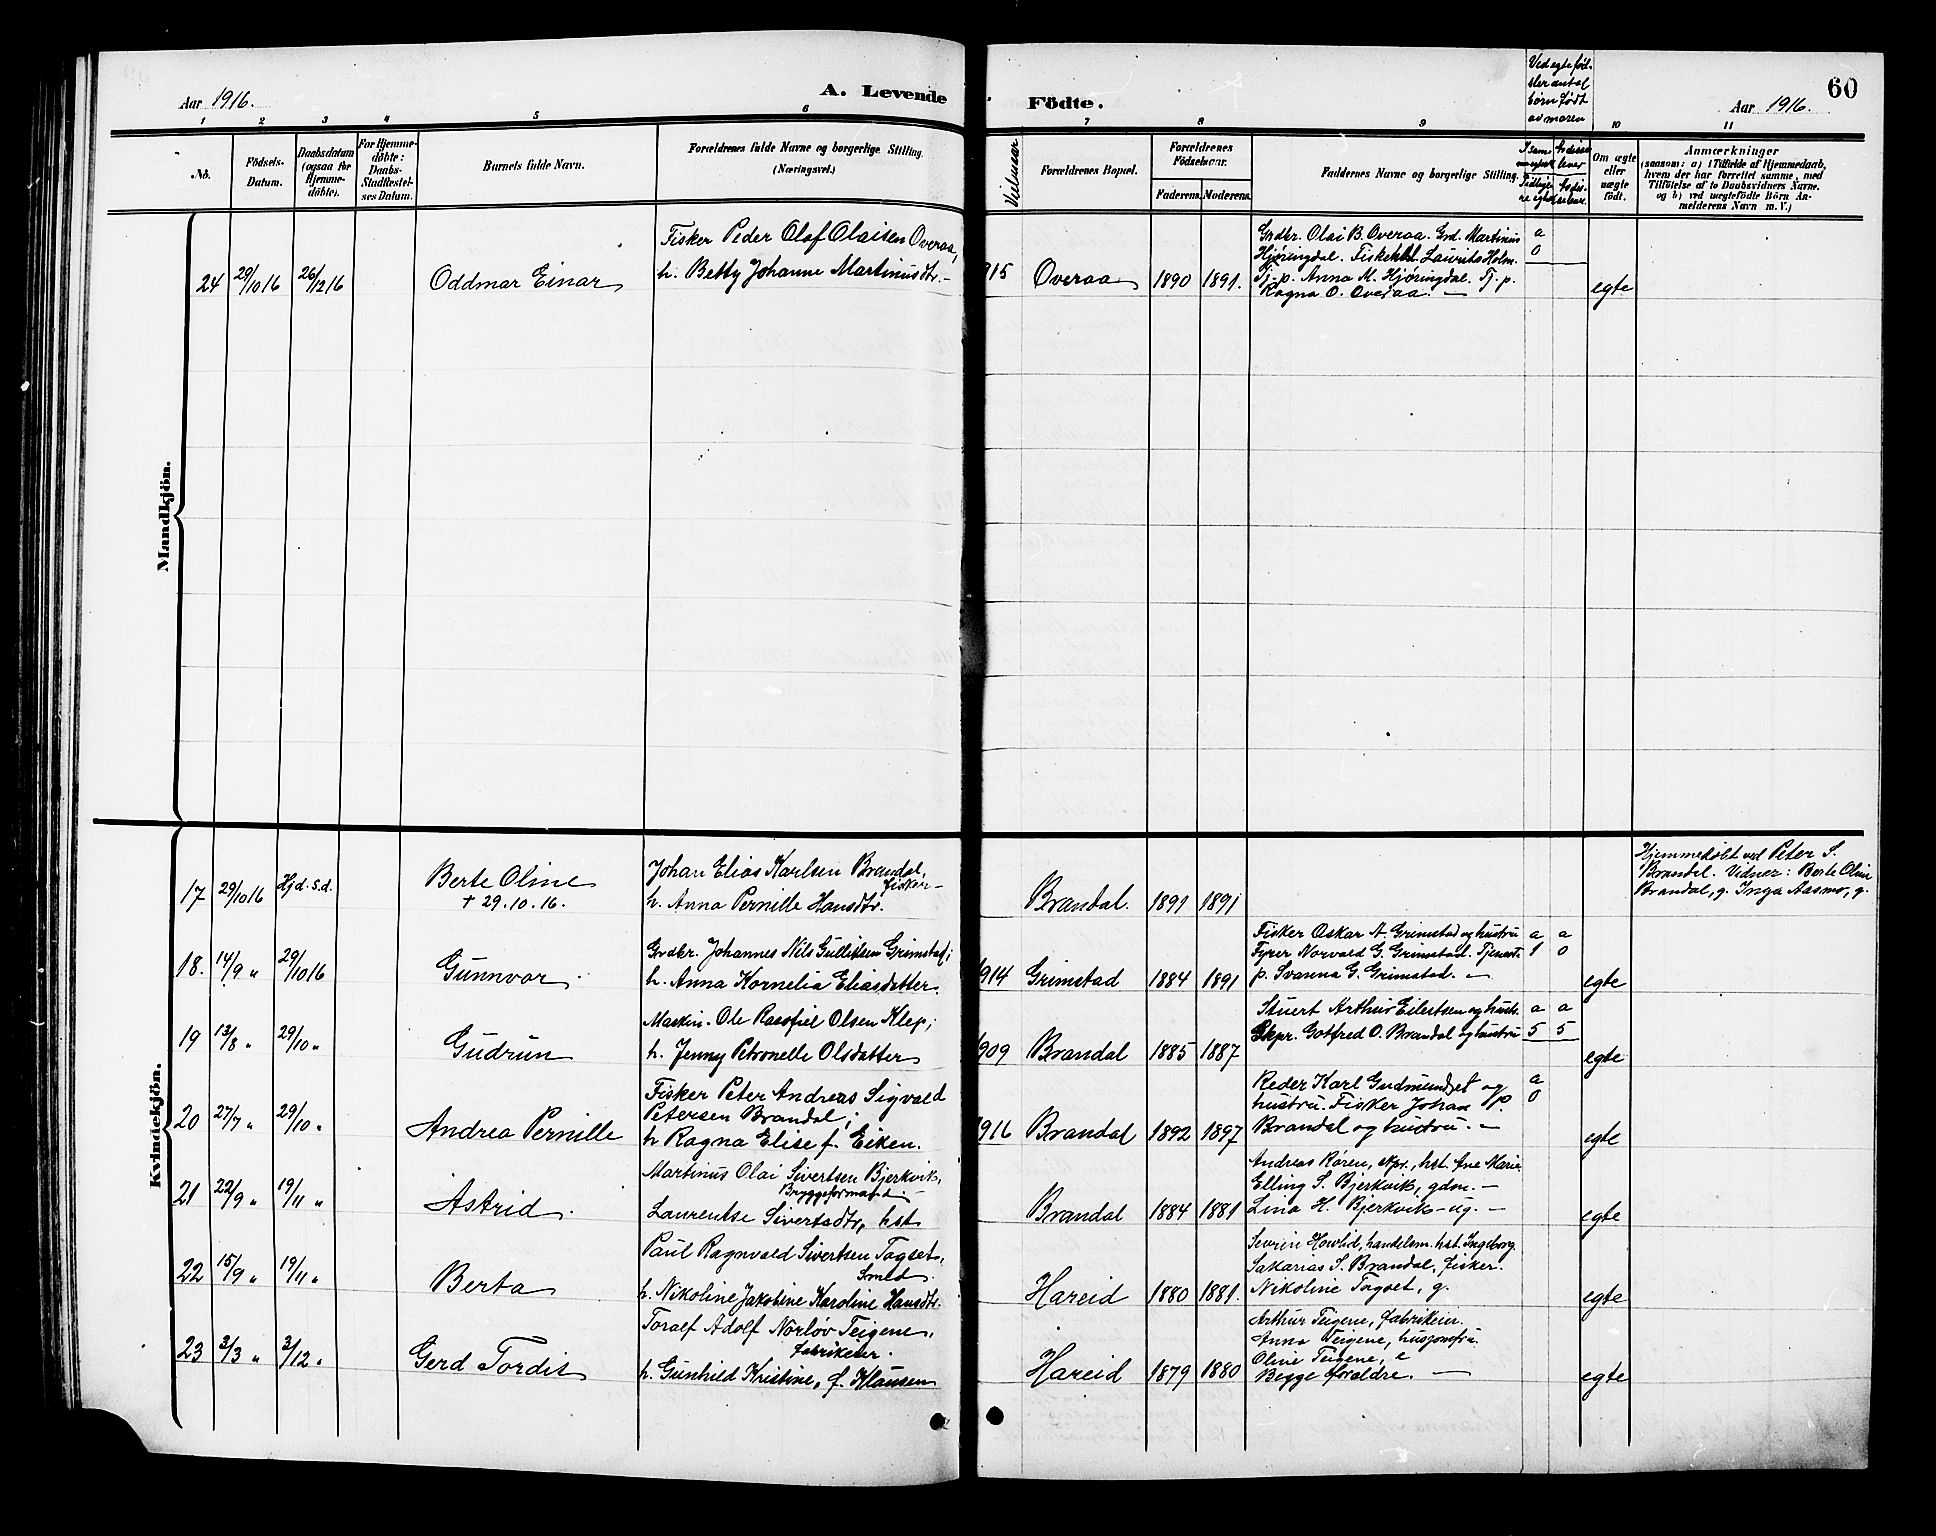 Aar 1916.
A. Levende
Födte.
Ved egte föd-
sler antal
börn födt
av moren
Aar 1916.
60
1 2 3 4 5 6 7 8 9 10 11
No.
Födsels-
Datum.
Daabsdatum
(ogsaa for
Hjemme-
döbte).
For Hjemme-
döbte:
Daabs-
Stadfæstel-
ses Datum.
Barnets fulde Navn.
Forældrenes fulde Navne og borgerlige Stilling.
(Næringsvei.)
Vielsesaar
Forældrenes Bopæl.
Forældrenes
Födselsaar.
Faderens. Moderens.
Faddernes Navne og borgerlige Stilling.
Om ægte
eller
uægte
födt.
Anmærkninger
(saasom: a) i Tilfælde af Hjemmedaab,
hvem der har forrettet samme, med
Tilföielse af to Daabsvidners Navne.
og b) ved uægtefödte Börn An-
melderens Navn m. V.)
Mandkjön.
24 29/10 16 26/12 16 Oddmar Einar
Fisker Peder Olaf Olaisen Overaa,
h. Betty Johanne Martinusdtr. —
915 Overaa 1890 1891.
Grdbr. Olai B. Overaa. Grd. Martinus
Hjøringdal. Laurits Holm.
Tj. p. Anna M. Hjøringdal. Tj. p.
Ragna O. Overaa. —
a
0
egte
Kvindekjön.
17 29/10 16 Hjd. s.d. Berte Oline
+ 29.10.16.
Johan Elias Karlsen Brandal,
fisker —
h. Anna Pernille Hansdtr.
Brandal. 1891 1891
Hjemmedöbt ved Peter S.
Brandal. Vidner: Berte Oline
Brandal, g. Inga Aasmo, g.
18. 14/9 " 29/10 16 Gunnvor.
Grdbr. Johannes Nils Gulliksen Grimstad;
h. Anna Kornelia Eliasdatter.
914 Grimstad 1884 1891
Fisker Oskar A. Grimstad og hustru
Fyrer Norvald G. Grimstad. Tjenest-
p. Svanna G. Grimstad. —
a a
1 0
egte
19 13/8 " 29/10 " Gudrun
Maskin. Ole Rasofiel Olsen Klep;
h. Jenny Petronelle Olsdatter
909 Brandal 1885 1887
Stuert Arthur Eilertsen og hustr.
Skpr. Gotfred O. Brandal og hustru
a a
5 5
egte
20 27/7 " 29/10 " Andrea Pernille
Fisker Peter Andreas Sigvald
Petersen Brandal;
h. Ragna Elise f. Eiken.
916 Brandal 1892 1897
Reder Karl Gudmundset og
hustru. Fisker Johan P.
Brandal og hustru. —
a
0
egte
21 22/9 " 19/11 " Astrid.
Martinus Olai Sivertsen Bjerkvik,
Bryggeformand. —
Laurentse Sivertsdtr, hst
Brandal 1884 1881
Andreas Røren, skpr., hst. Ane Marie
Elling S. Bjerkvik, gdm. —
Lina H. Bjerkvik - ug. —
egte
22 15/9 " 19/11 " Berta
Paul Ragnvald Sivertsen Tagset,
Smed.
h. Nikoline Jakobine Karoline Hansdtr.
Hareid 1880 1881.
Severin Howlid, handelsm. hst. Ingeborg
Sakarias S. Brandal, fisker.
Nikoline Tagset, g.
egte
23 3/3 " 3/12 " Gerd Tordis
Toralf Adolf Norløv Teigene,
fabrikeier.
h. Gunhild Kristine, f. Klausen
Hareid 1879 1880
Arthur Teigene, fabrikeier.
Anna Teigene, husjomfru
Oline Teigene, e
Begge foraldre. —
egte